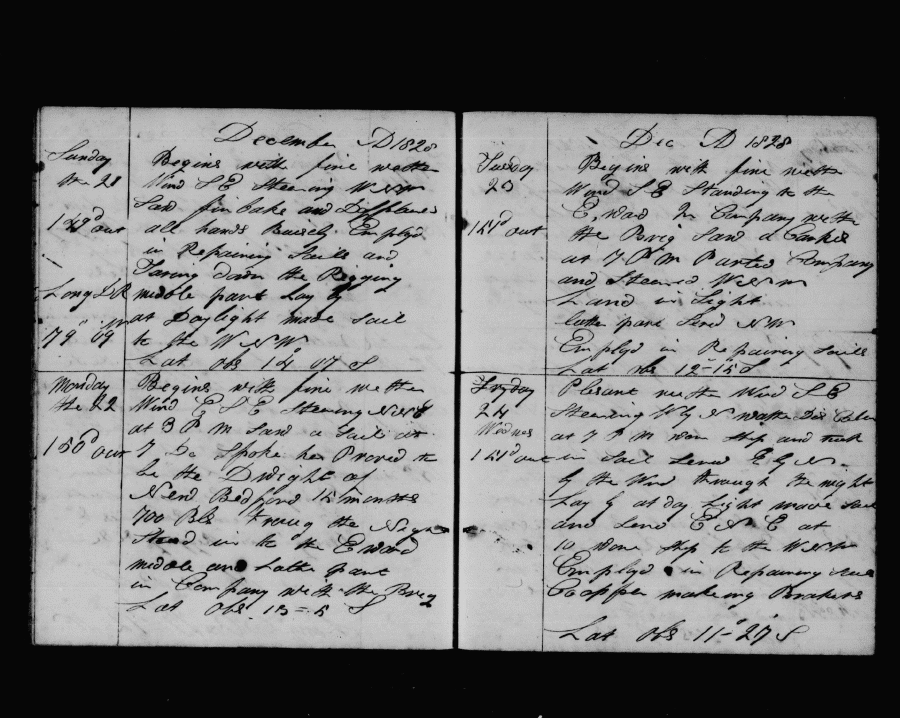 December AD 1828
Sunday
the 21
149d out
Long DR
79" 09
Begins with fine weather
Wind S E Steering W N W
Saw fin backs and
all hands Buisely Employd
in Repairing Sails and
Taring down the Rigging
middle part Lay by
at Daylight made Sail
to the W N W
Lat obs 14 07 S
Monday
the 22
150d out
Begins with fine weather
Wind E S E Steering
at 3 P M Saw a Sail at
7 Do Spoke her Proved to
be the Dwight of
New Bedford 15 months
700 Bls the Night
Stood in to the E ward
middle and Latter part
in Company with the Brig
Lat obs 13 = 5 S
Dec AD 1828
Tuesday
23
151d out
Begins with fine weather
Wind S E Standing to the
E, ward In Company with
the Brig Saw a
at 7 P M Parted Company
and Steered W N W
Land in Sight
latter part Sterd N W
Employd in Repairing Sails
Lat obs 12 = 15 S
24
Wednes
151d out
Plesant weather Wind S E
Steering W by N
at 7 P M wore Ship and took
in Sail E by N
by the Wind through the night
Lay by at day Light made Sail
and E N E at
10 wore Ship to the W N W
Employd in Repairing Sails
Coopper making
Lat obs 11 = 27 S